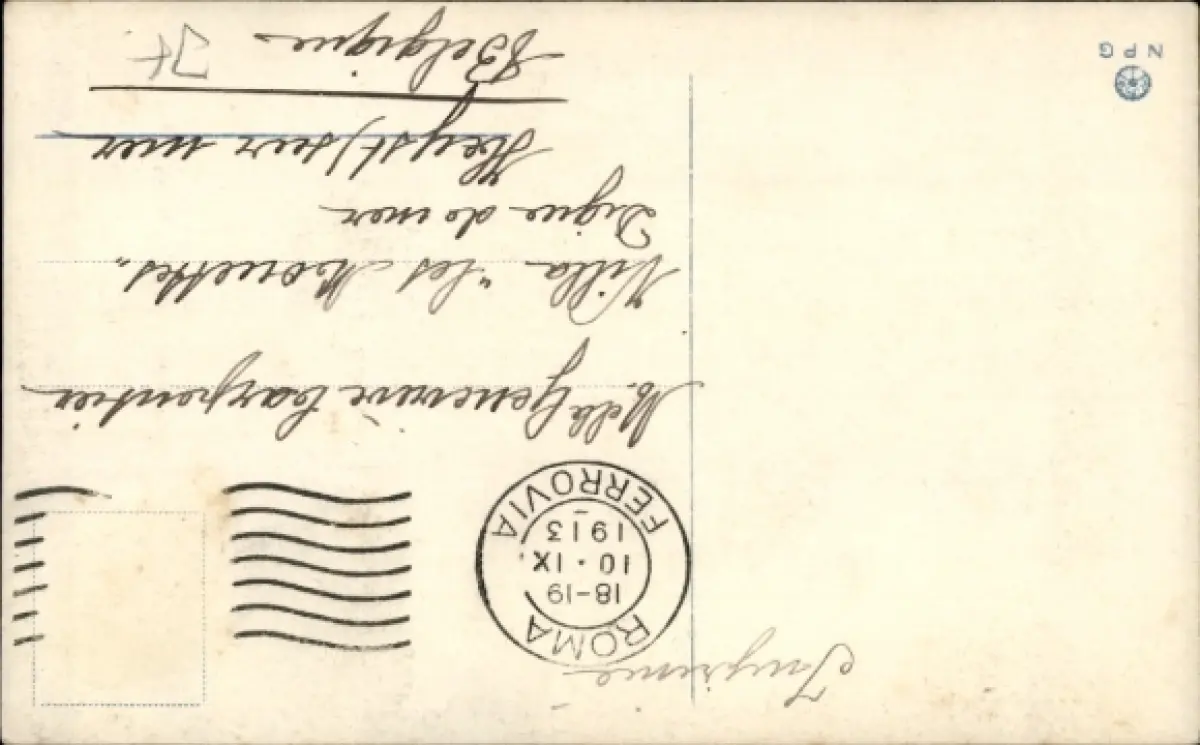 Imprimé
ROMA
18-19
10·IX.
1913
FERROVIA
Melle Geneviève Carpentier
Villa "Les Mouettes"
Digue de mer
Heyst) sur mer
Belgique
NPG